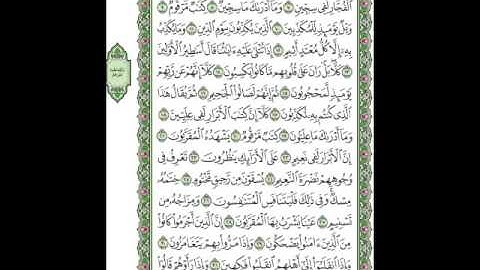 الفجار لفي سجين ٧ وما أدراك ما سجين ٨ كتاب مرقوم ٩
ويل يومئذ للمكذبين ١٠ الذين يكذبون بيوم الدين ١١ وما يكذب
به إلا كل معتد أثيم ١٢ إذا تتلى عليه ءاياتنا قال أساطير الأولين
١٣ كلا بل ران على قلوبهم ما كانوا يكسبون ١٤ كلا إنهم عن ربهم
يومئذ لمحجوبون ١٥ ثم إنهم لصالوا الجحيم ١٦ ثم يقال هذا
الذي كنتم به تكذبون ١٧ كلا إن كتاب الأبرار لفي عليين ١٨
وما أدراك ما عليون ١٩ كتاب مرقوم ٢٠ يشهده المقربون ٢١
إن الأبرار لفي نعيم ٢٢ على الأرائك ينظرون ٢٣ تعرف في
وجوههم نضرة النعيم ٢٤ يسقون من رحيق مختوم ٢٥ ختامه
مسك وفي ذلك فليتنافس المتنافسون ٢٦ ومزاجه من
تسنيم ٢٧ عينا يشرب بها المقربون ٢٨ إن الذين أجرموا كانوا
من الذين ءامنوا يضحكون ٢٩ وإذا مروا بهم يتغامزون ٣٠
وإذا انقلبوا إلى أهلهم انقلبوا فكهين ٣١ وإذا رأوهم قالوا